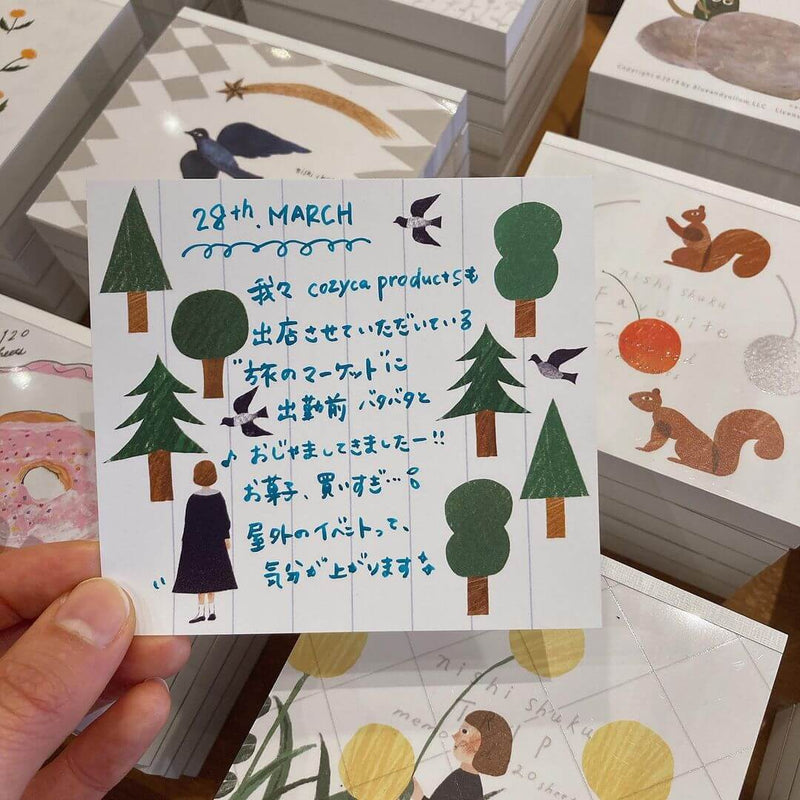 28th. MARCH
我々 cozyca productsも
出店させていただいている
"旅のマーケット"に
出勤前 バタバタと
♪ おじゃましてきましたー!!
お菓子、買いすぎ…。
屋外のイベントって、
気分が上がります
Copyright ©2018 by Blueandyellow, LLC
nishi shuku
Favorite
nishi shuku
Trip
memo
20sheets